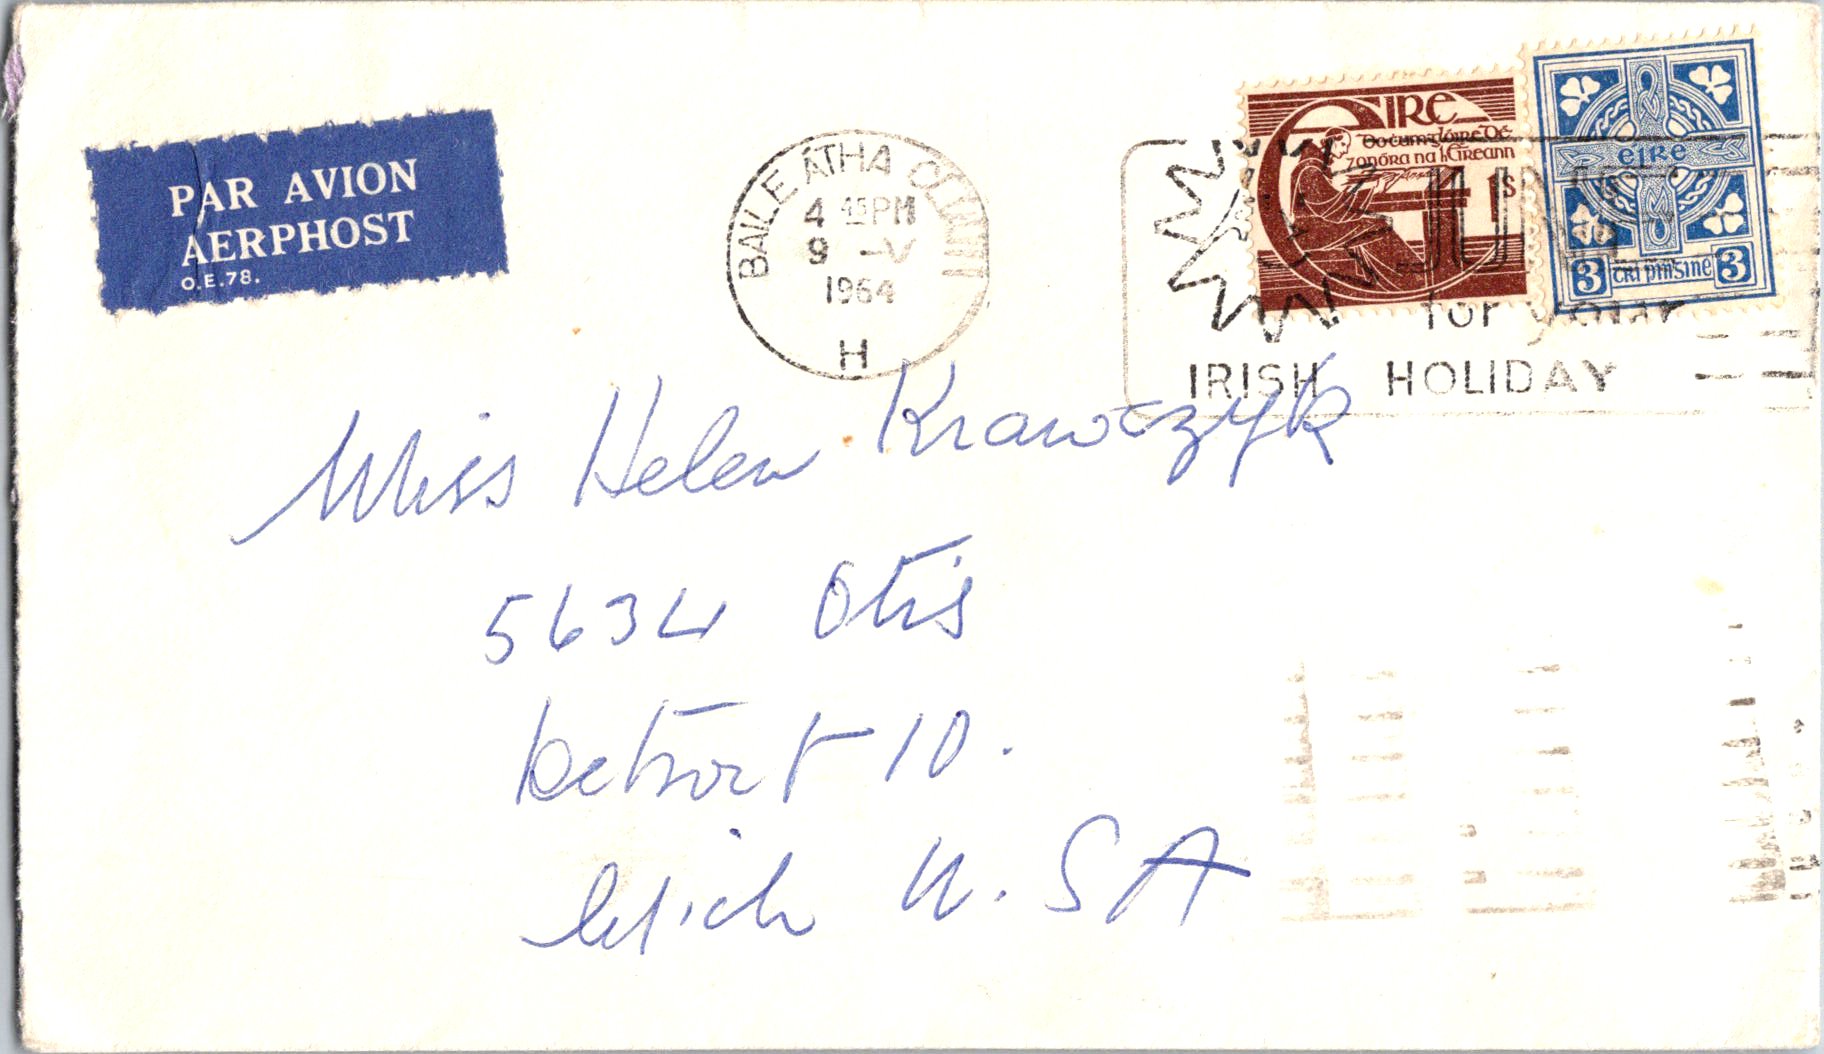 PAR AVION
AERPHOST
O.E.78.
BAILE ÁTHA CLIATH
4 45PM
9 -V
1964
H
EIRE
Do cum glóire Dé
7 onóra na hÉireann
1s
EIRE
3 trí pingine 3
JUNE
for your
IRISH HOLIDAY
Miss Helen Krawczyk
5634 Otis
Detroit 10.
Mich U.SA